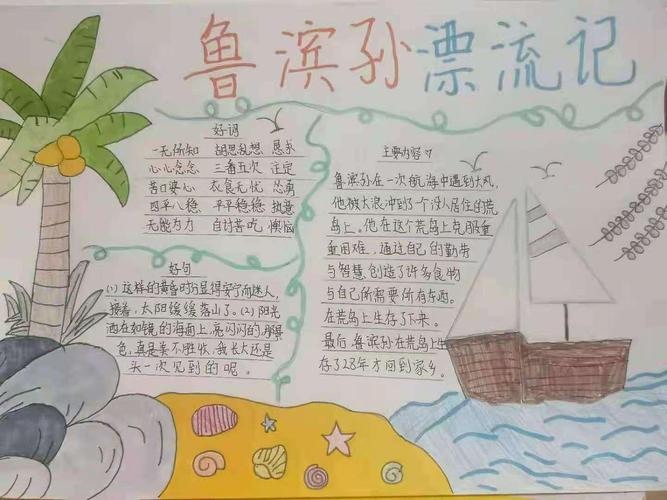 鲁滨孙漂流记
好词
一无所知 胡思乱想 恳求
心心念念 三番五次 注定
苦口婆心 衣食无忧 怂勇
四平八稳 平平稳稳 执意
无能为力 自讨苦吃 懊恼
好句
(1) 这样的黄昏时分显得安宁而迷人,
接着,太阳缓缓落山了。(2) 阳光
洒在如镜的海面上,亮闪闪的
色,真是美不胜收,我长大还是
头一次见到的呢。
主要内容
鲁滨孙在一次航海中遇到大风,
他被大浪冲到了个没人居住的荒
岛上。他在这个荒岛上克服重
重困难,通过自己的勤劳
与智慧创造了许多食物
与自己所需要所有东西。
在荒岛上生存了下来。
最后,鲁滨孙在荒岛上生
存了28年才回到家乡。